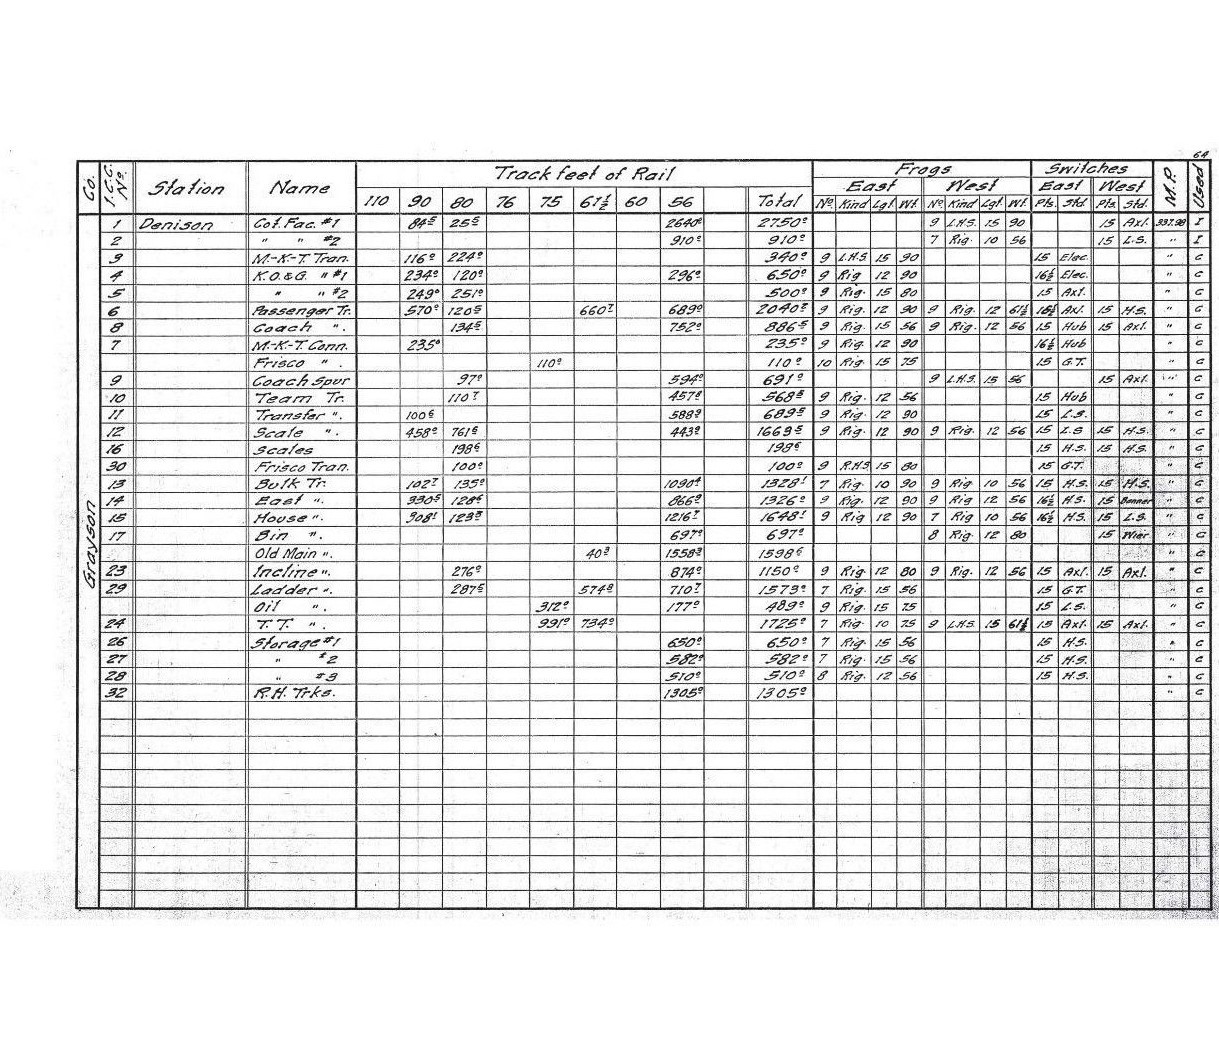 64
Co. I.C.C. No. Station Name Track feet of Rail Frogs Switches M.P. Used
East West East West
110 90 80 76 75 67½ 60 56 Total No. Kind Lgt. Wt. No. Kind Lgt. Wt. Pts. Std. Pts. Std.
Grayson
1 Denison Cot. Fac. #1 84⁵ 25⁵ 2640⁰ 2750⁰ 9 L.H.S. 15 90 15 Axl. 337.98 I
2 " " #2 910⁰ 910⁰ 7 Rig. 10 56 15 L.S. " I
3 M.-K-T Tran. 116⁰ 224⁰ 340⁰ 9 L.H.S 15 90 15 Elec. " C
4 K.O.&G. " #1 234⁰ 120⁰ 296⁰ 650⁰ 9 Rig 12 90 16½ Elec. " C
5 " " #2 249⁰ 251⁰ 500⁰ 9 Rig. 15 80 15 Axl. " C
6 Passenger Tr. 570⁰ 120⁵ 660⁷ 689⁰ 2040² 9 Rig. 12 90 9 Rig. 12 67½ Axl. 15 H.S. " C
8 Coach ". 134⁵ 752⁰ 886⁵ 9 Rig. 15 56 9 Rig. 12 56 15 Hub 15 Axl. " C
7 M.-K-T Conn. 235⁰ 235⁰ 9 Rig. 12 90 16½ Hub " C
Frisco " 110⁰ 110⁰ 10 Rig 15 75 15 G.T. " C
9 Coach Spur 97⁰ 594⁰ 691⁰ 9 L.H.S. 15 56 15 Axl. " C
10 Team Tr. 110⁷ 457⁸ 568⁵ 9 Rig. 12 56 15 Hub " C
11 Transfer ". 100⁶ 588⁹ 689⁵ 9 Rig. 12 90 15 L.S. " C
12 Scale ". 458⁰ 761⁶ 443⁹ 1663⁵ 9 Rig. 12 90 9 Rig. 12 56 15 L.S 15 H.S. " C
16 Scales 198⁶ 198⁶ 15 H.S. 15 H.S. " C
30 Frisco Tran. 100⁰ 100⁰ 9 R.H.S 15 80 15 G.T. " C
13 Bulk Tr. 102⁷ 135⁰ 1090⁴ 1328¹ 7 Rig. 10 90 9 Rig. 10 56 15 H.S. 15 H.S. " C
14 East ". 330⁵ 128⁶ 866⁹ 1326⁰ 9 Rig. 12 90 9 Rig 12 56 16½ H.S. 15 Banner " C
15 House ". 308¹ 123³ 1216⁷ 1648¹ 9 Rig 12 90 7 Rig 10 56 16½ H.S. 15 L.S. " C
17 Bin ". 697⁰ 697⁰ 8 Rig. 12 80 15 Wier " C
Old Main ". 40³ 1558³ 1598⁶ " C
23 Incline ". 276⁰ 874⁰ 1150⁰ 9 Rig. 12 80 9 Rig. 12 56 15 Axl. 15 Axl. " C
29 Ladder ". 287⁵ 574⁸ 710⁷ 1573⁰ 7 Rig. 15 56 15 G.T. " C
Oil ". 312⁰ 177⁰ 489⁰ 9 Rig. 15 75 15 L.S. " C
24 T.T. ". 991⁰ 734⁰ 1725⁰ 7 Rig. 10 75 9 L.H.S. 15 67½ 15 Axl. 15 Axl. " C
26 Storage #1 650⁰ 650⁰ 7 Rig. 15 56 15 H.S. " C
27 " #2 582⁰ 582⁰ 7 Rig. 15 56 15 H.S. " C
28 " #3 510⁰ 510⁰ 8 Rig. 12 56 15 H.S. " C
32 R.H. Trks. 1305⁰ 1305⁰ " C